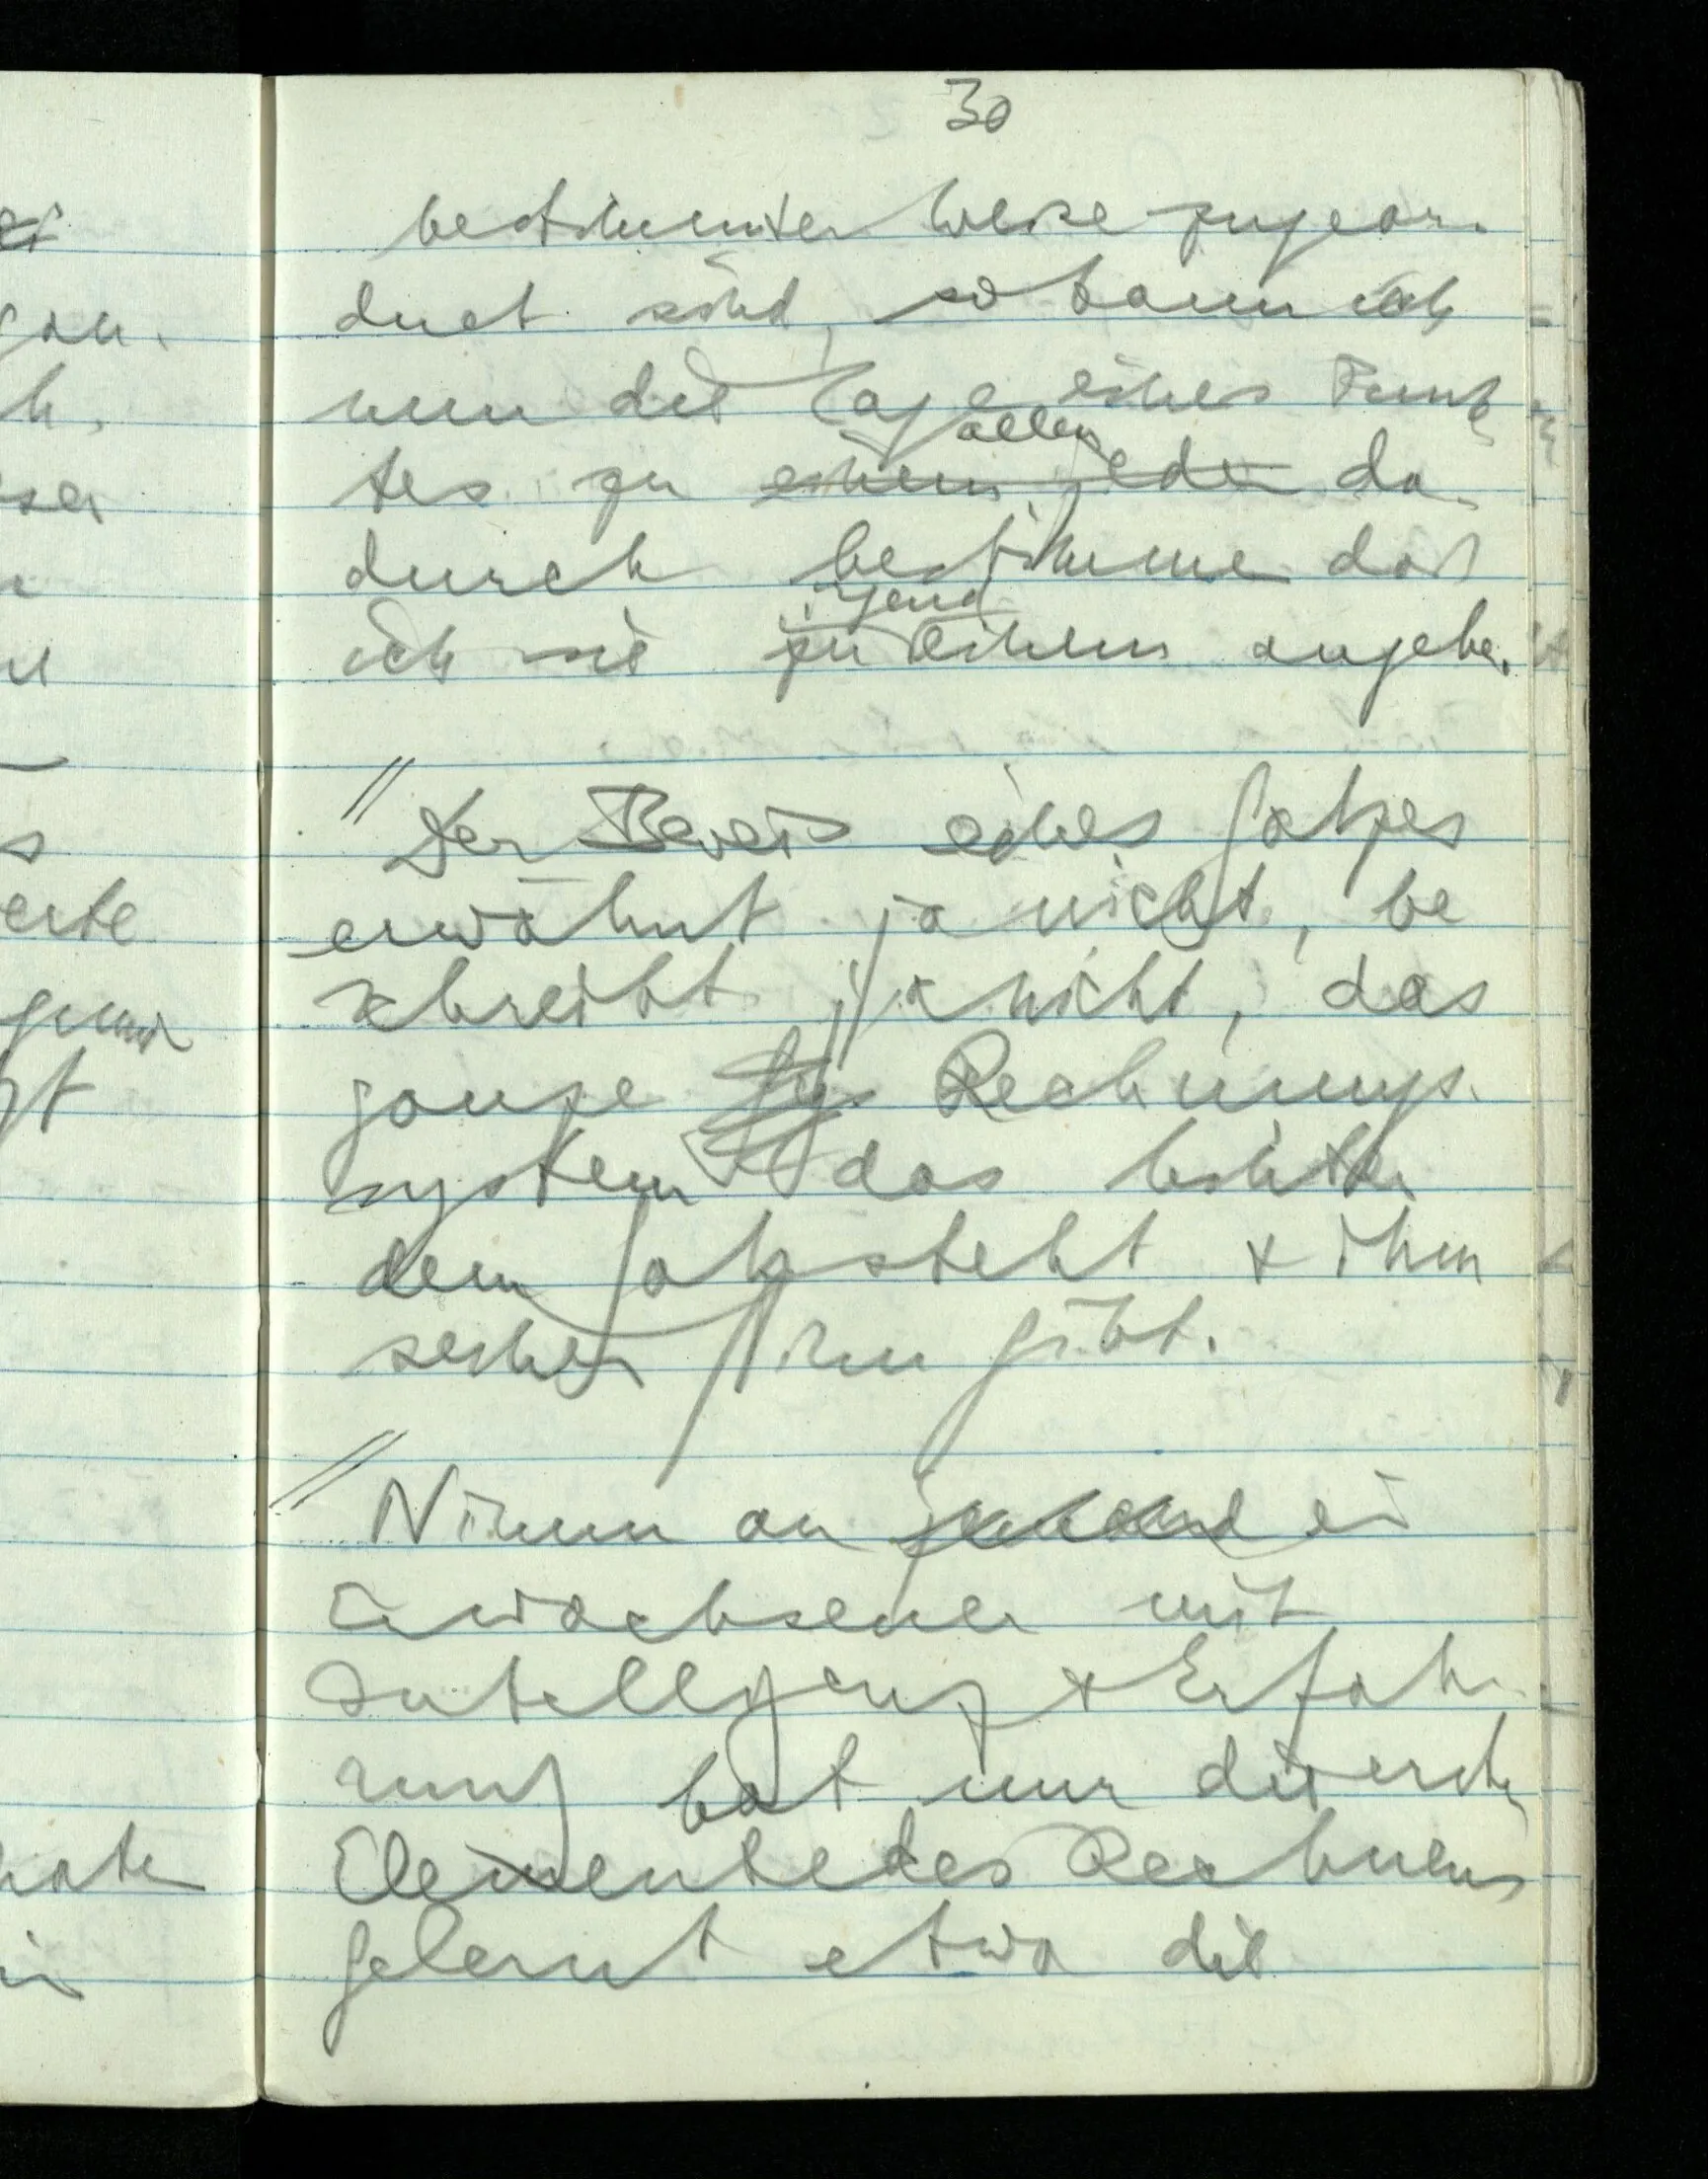 30
bestimmter Weise zugeor-
dnet sind, so kann ich
nun die Lage eines Punk
tes zu allen da-
durch bestimme daß
ich sie zu irgend einem angebe.
// Der Beweis eines Satzes
erwähnt ja nicht, be
schreibt ja nicht, das
ganze Rechnungs-
system das hinter
dem Satz steht & ihm
seinen Sinn gibt.
// Nimm an ein
Erwachsener mit
Intelligenz & Erfah-
rung hat nur die ersten
Elemente des Rechnens
gelernt etwa die